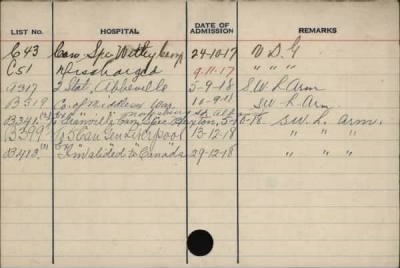 LIST NO. HOSPITAL DATE OF ADMISSION REMARKS
C 43 Can. Spec Witley Camp 24-10-17 V. D. G
C 51 Discharged 9-11-17 " " "
A317 3 Stat, Abbeville 5-9-18 S.W. L Arm
B319 Co. of Middlesex War 10-9-18 S.W. L. Arm.
B341 Granville Can. Spec Buxton, 5-10-18 S.W. L. arm.
B399 5 Can Gen Liverpool 13-12-18 " " "
B413 Invalided to Canada 29-12-18 " " "